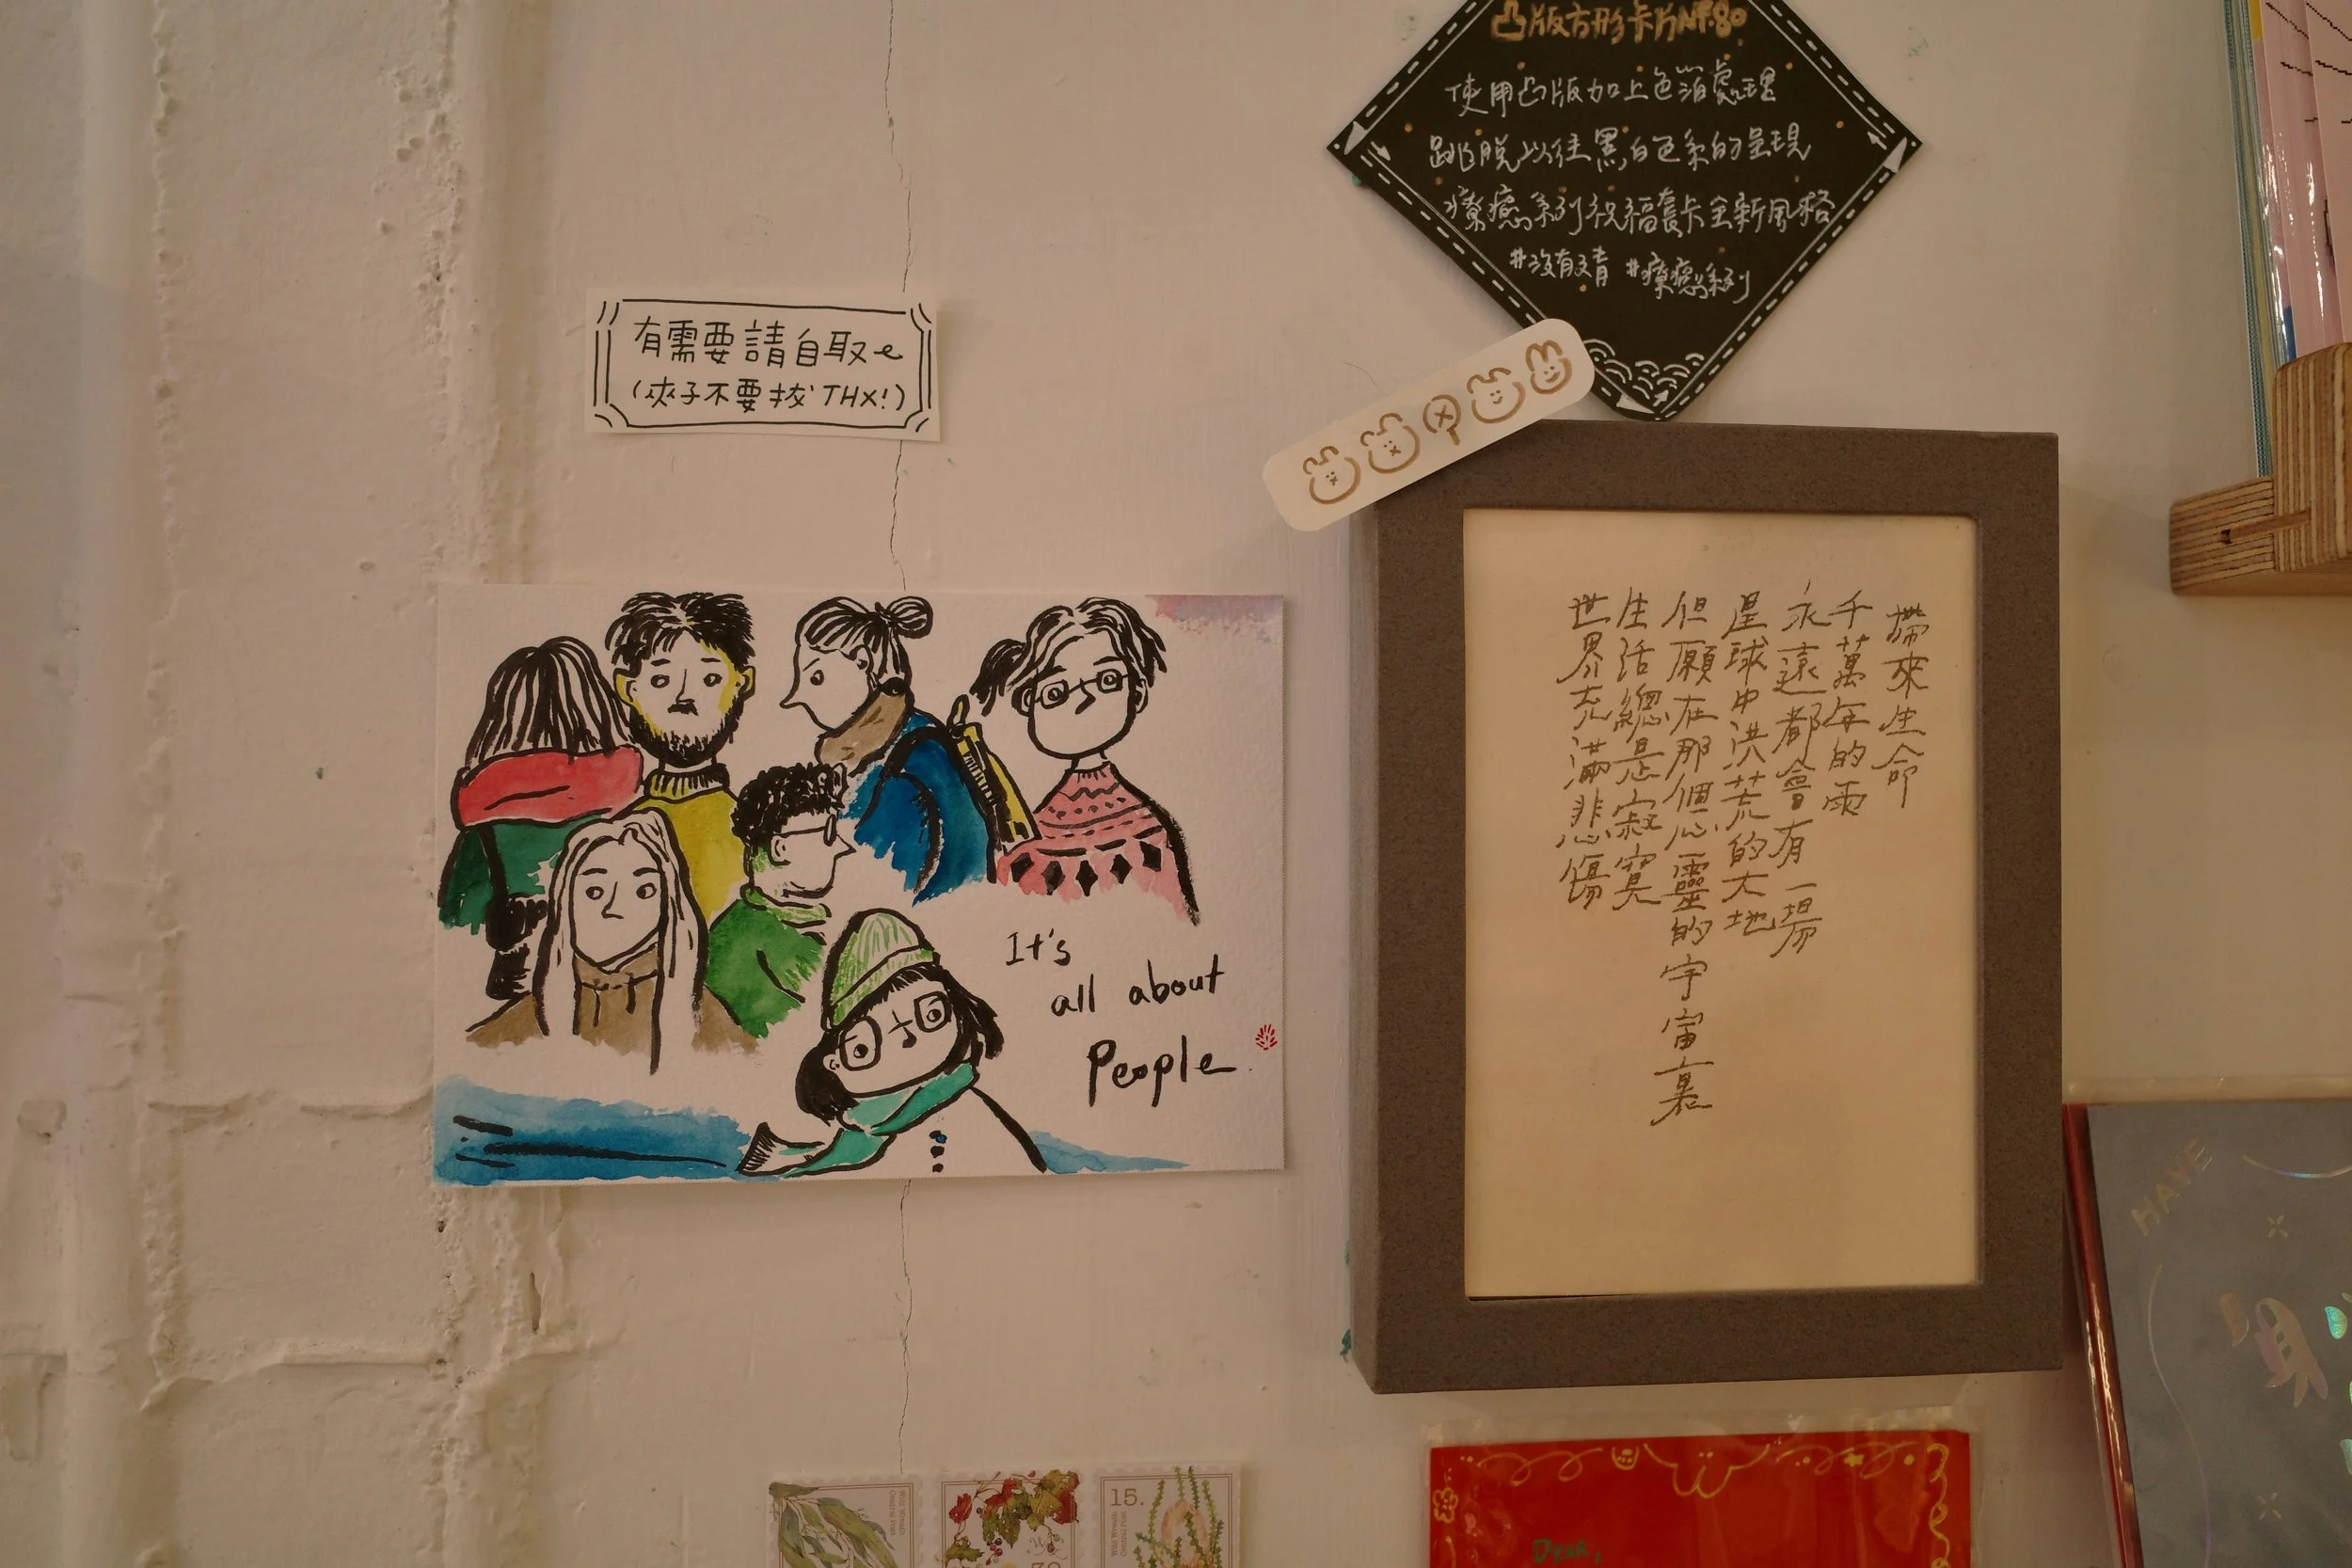 凸版方形卡片NT.80
使用凸版加上色箔處理
跳脫以往黑白色系的呈現
療癒系列祝福套卡全新風格
#沒有文青 #療癒系列
有需要請自取~
(夾子不要拔 THX!)
It's
all about
People.
世界充滿悲傷
生活總是寂寞
但願在那個心靈的宇宙裏
星球中洪荒的大地
永遠都會有一場
千萬年的雨
帶來生命
HAVE
15.
Dear,